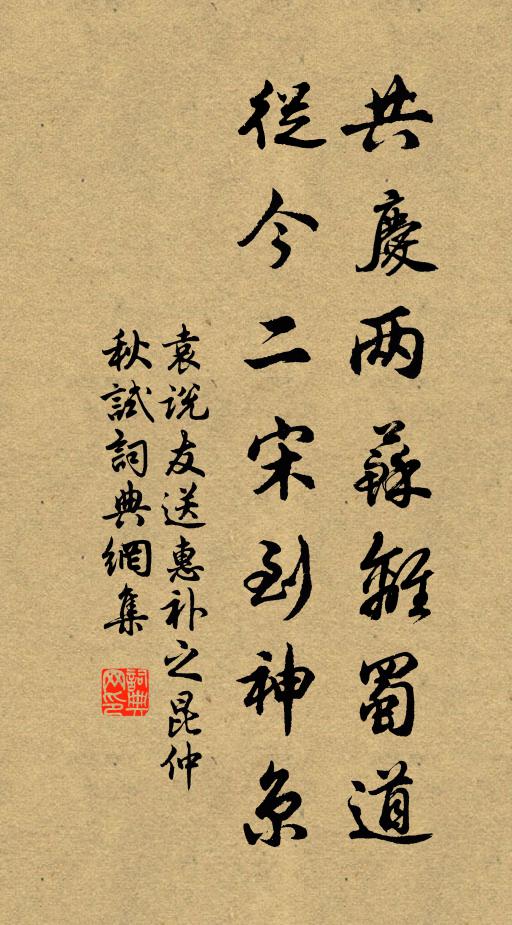 共慶两蘇離蜀道
從今二宋到神京
袁说友送惠补之昆仲
秋試詞典網集
詞典网印